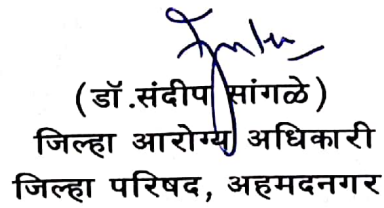 (डॉ.संदीप सांगळे)
जिल्हा आरोग्य अधिकारी
जिल्हा परिषद, अहमदनगर